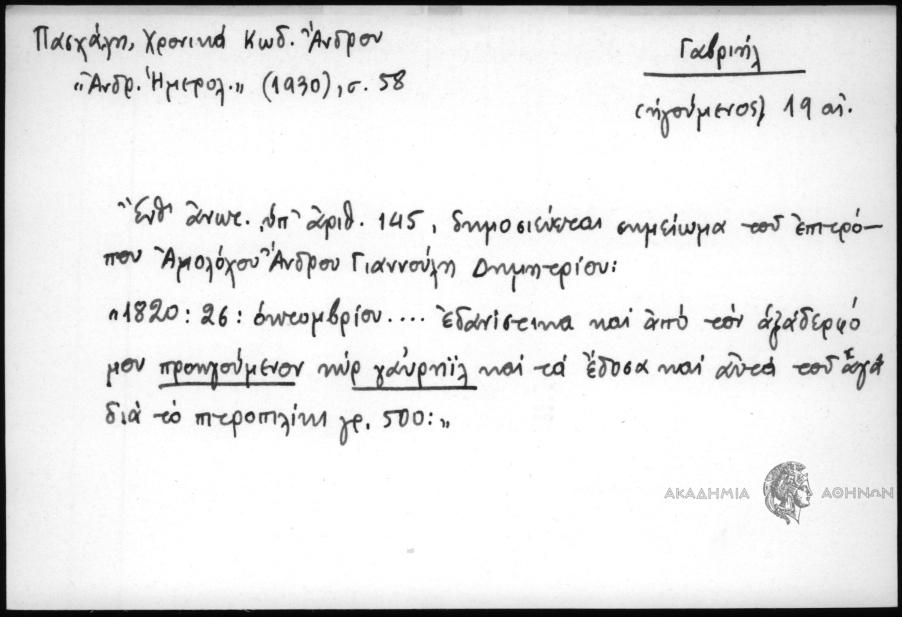 Πασχάλη, Χρονικά Κωδ. Ἄνδρου
"Ἀνδρ. Ἡμερολ." (1930), σ. 58
Γαβριήλ
(ἡγούμενος) 19 αἰ.
Ἔνθ' ἀνωτ. ὑπ' ἀριθ. 145, δημοσιεύεται σημείωμα τοῦ ἐπιτρό-
που Ἀμολόχου Ἄνδρου Γιαννούλη Δημητρίου:
"1820: 26: ὀκτομβρίου.... ἐδανίστικα καί ἀπό τόν ἀξάδερφό
μου προηγούμενον κύρ γαύρηϊλ καί τά ἔδοσα καί αὐτά τοῦ ἀγά
διά τό πιτροπιλίκι γρ. 500:"
ΑΚΑΔΗΜΙΑ ΑΘΗΝΩΝ